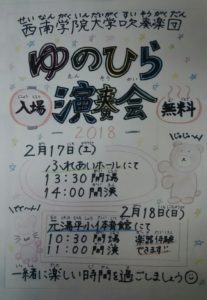 せいなんがくいんだいがくすいそうがくだん
西南学院大学吹奏楽団
ゆのひら
えんそうかい
演奏会
入場
無料
2018
2月17日(土)
ふれあいホールにて
13:30 開場
14:00 開演
2月18日(日)
元湯平小体育館にて
10:30 開場
11:00 開演
楽器体験
できます!!
一緒に楽しい時間を過ごしましょう